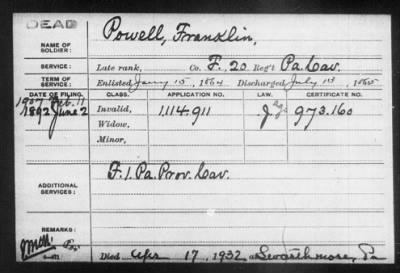 DEAD
NAME OF SOLDIER: Powell, Franklin,
SERVICE: Late rank, Co. F. 20 Reg't Pa. Cav.
TERM OF SERVICE: Enlisted Jany 15, 1864 Discharged July 13 1865
DATE OF FILING. CLASS. APPLICATION NO. LAW. CERTIFICATE NO.
1907 Feb. 11
1892 June 2 Invalid, 1114.911 J age 973.160
Widow,
Minor,
ADDITIONAL SERVICES: F. 1. Pa. Prov. Cav.
REMARKS:
Died Apr 17, 1932 at Swarthmore, Pa